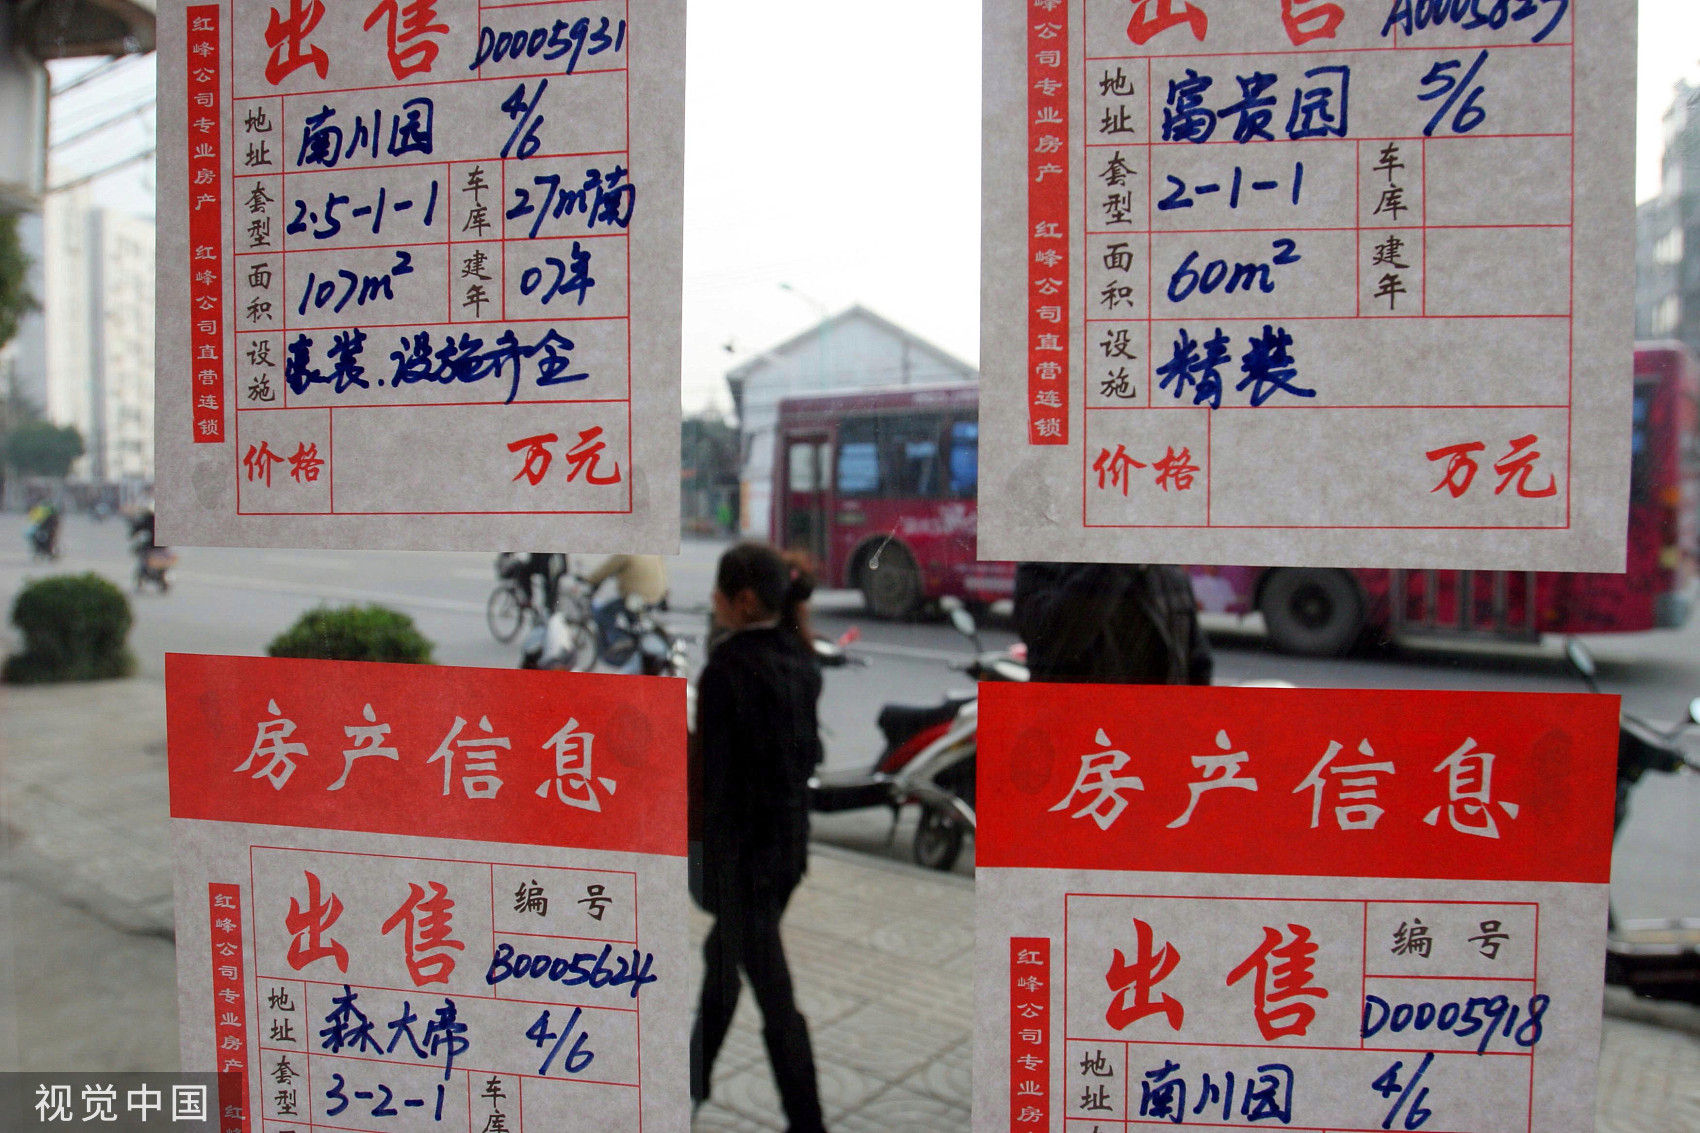 红峰公司专业房产 红峰公司直营连锁
出售
D0005931
地址 南川园 4/6
套型 2.5-1-1 车库 27m²南
面积 107m² 建年 07年
设施 豪装.设施齐全
价格 万元
峰公司专业房产 红峰公司直营连锁
出售
地址 富贵园 5/6
套型 2-1-1 车库
面积 60m² 建年
设施 精装
价格 万元
房产信息
红峰公司专业房产 红
出售 编号
B0005624
地址 森大帝 4/6
套型 3-2-1 车库
房产信息
红峰公司专业房
出售 编号
D0005918
地址 南川园 4/6
视觉中国